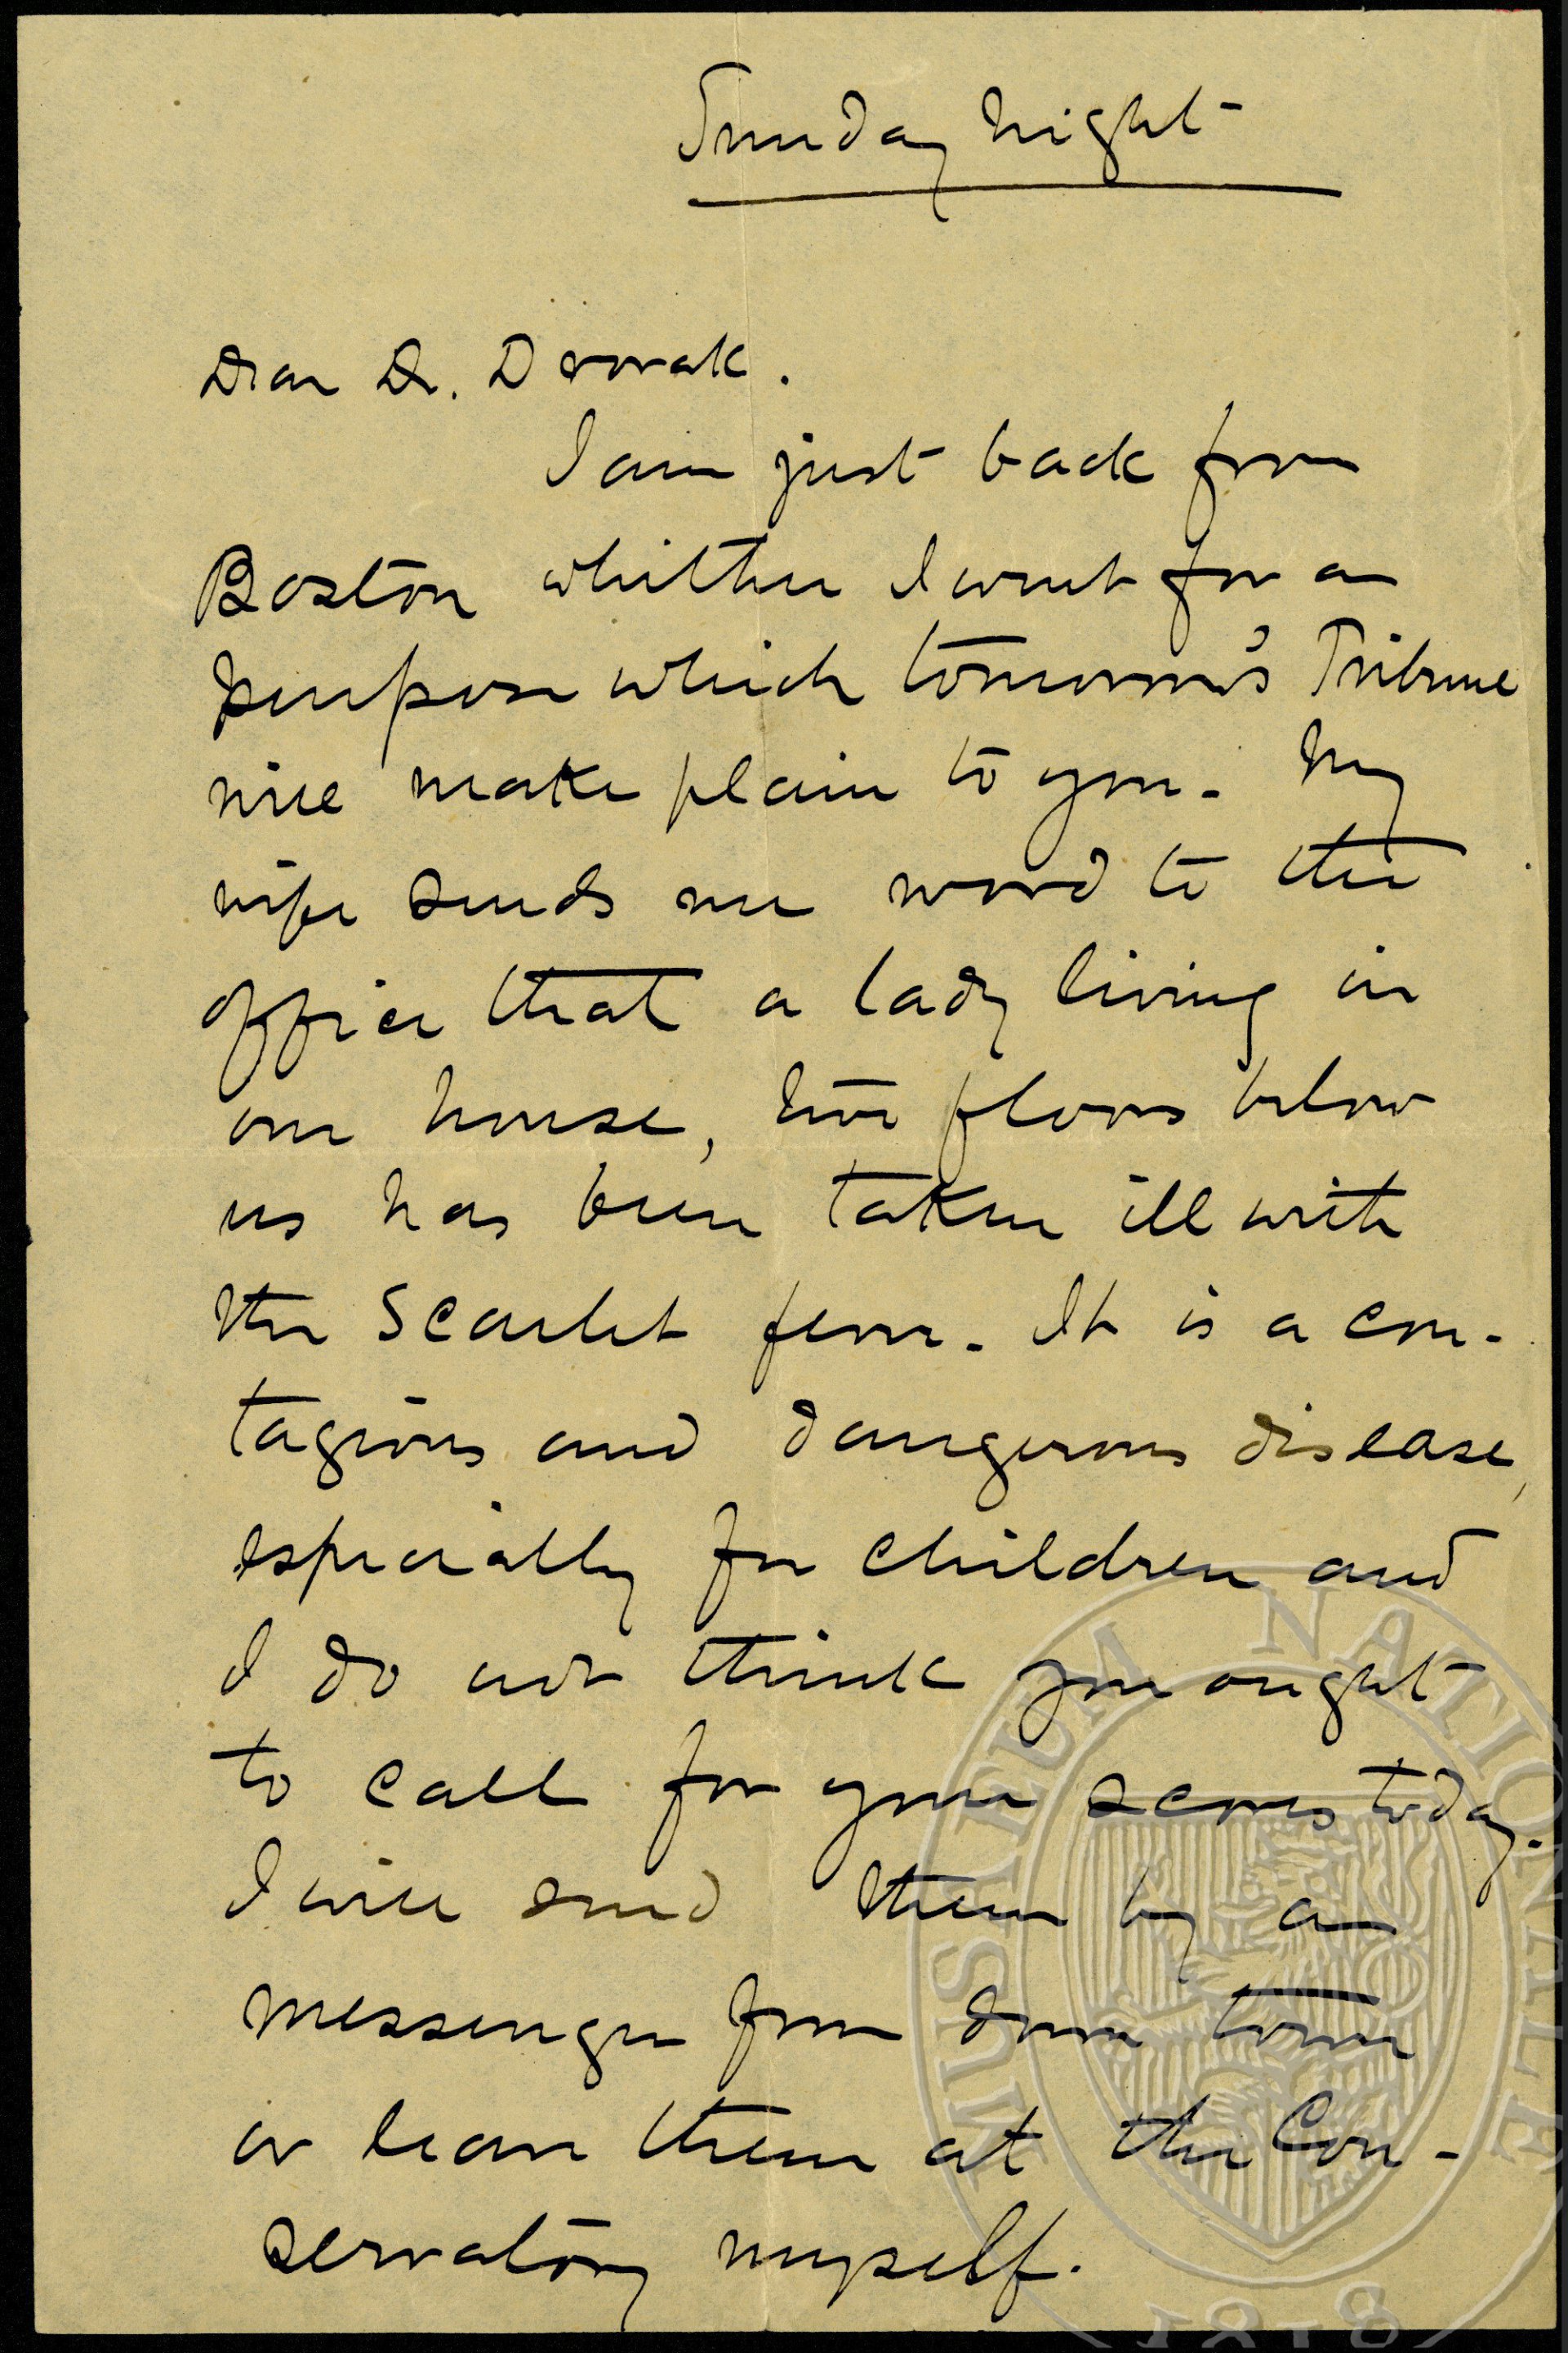 Sunday night
Dear Dr. Dvorak.
I am just back from
Boston whither I went for a
purpose which tomorrow's Tribune
will make plain to you. My
wife sends me word to the
office that a lady living in
our house, two floors below
us has been taken ill with
the scarlet fever. It is a con-
tagious and dangerous disease,
especially for children and
I do not think you ought
to call for your scores today.
I will send them by a
messenger from down town
or leave them at the Con-
servatory myself.
MUSEUM NATIONALE
1818